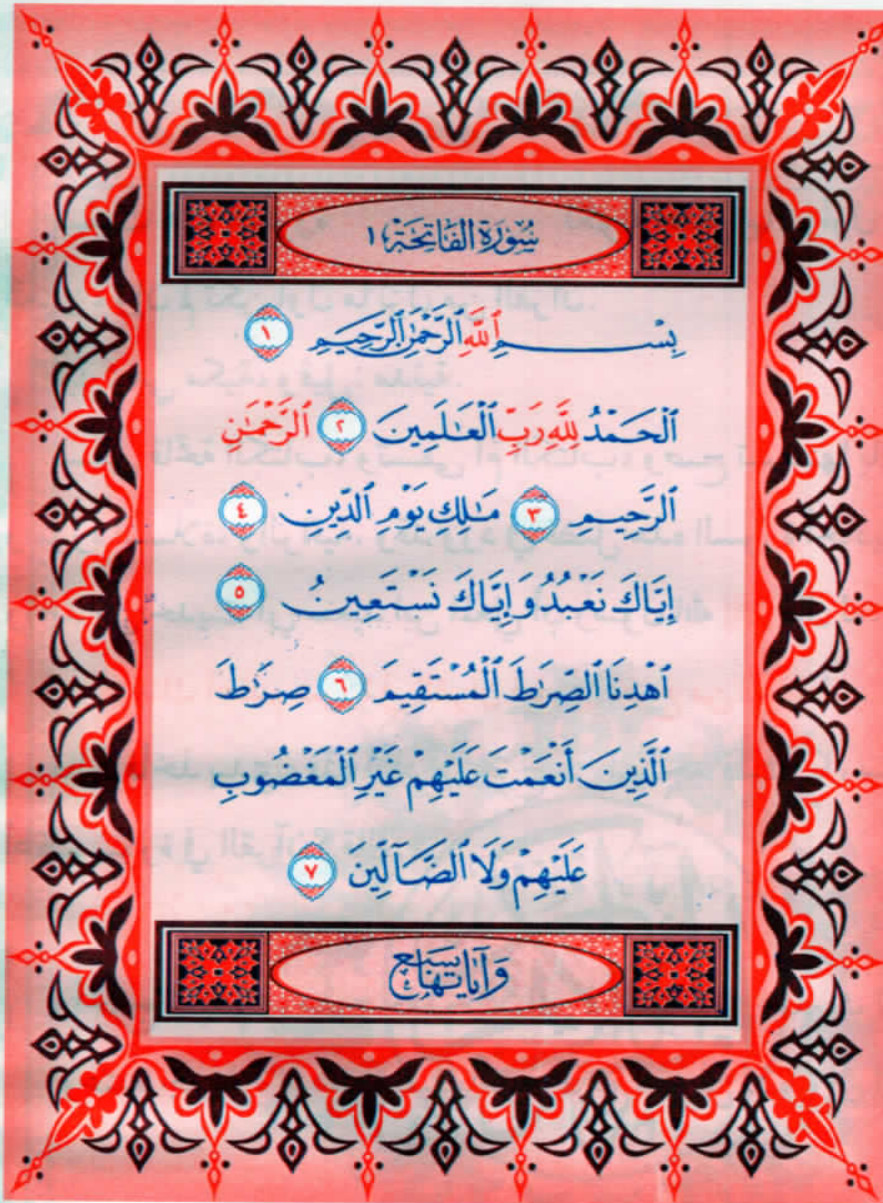 سُورَةُ الفَاتِحَة ١
بِسْمِ ٱللَّهِ ٱلرَّحْمَٰنِ ٱلرَّحِيمِ ١
ٱلْحَمْدُ لِلَّهِ رَبِّ ٱلْعَٰلَمِينَ ٢ ٱلرَّحْمَٰنِ
ٱلرَّحِيمِ ٣ مَٰلِكِ يَوْمِ ٱلدِّينِ ٤
إِيَّاكَ نَعْبُدُ وَإِيَّاكَ نَسْتَعِينُ ٥
ٱهْدِنَا ٱلصِّرَٰطَ ٱلْمُسْتَقِيمَ ٦ صِرَٰطَ
ٱلَّذِينَ أَنْعَمْتَ عَلَيْهِمْ غَيْرِ ٱلْمَغْضُوبِ
عَلَيْهِمْ وَلَا ٱلضَّآلِّينَ ٧
وَآيَاتُهَا سَبْع